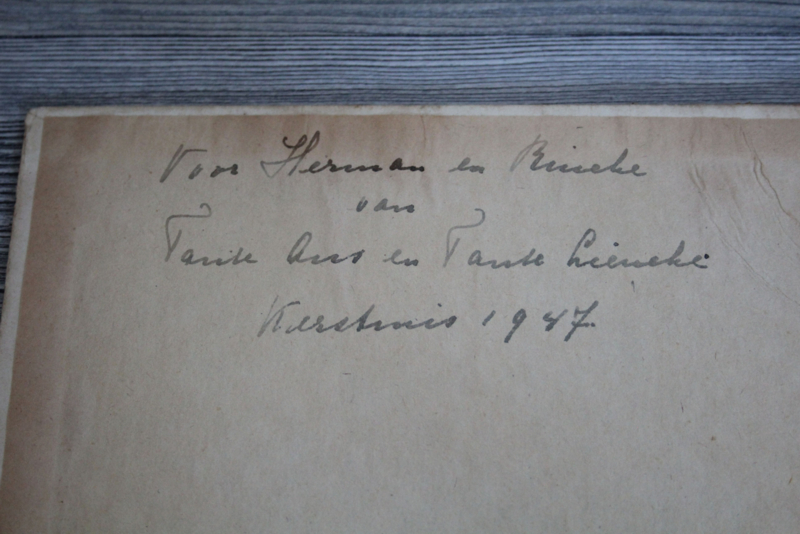 Voor Herman en Rineke
van
Tante Ans en Tante Lieneke
Kerstmis 1947.